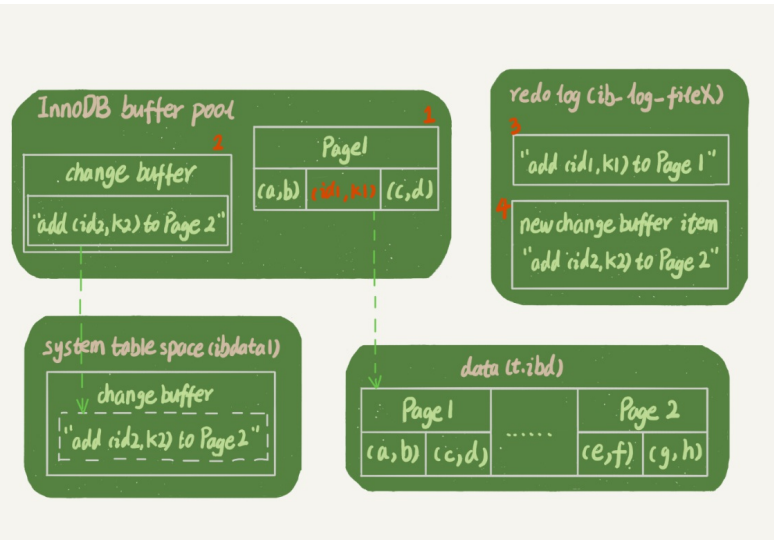 InnoDB buffer pool
2
change buffer
"add (id2,k2) to Page 2"
1
Page1
(a,b)
(id1,k1)
(c,d)
redo log (ib-log-fileX)
3
"add (id1,k1) to Page 1"
4
new change buffer item
"add (id2,k2) to Page 2"
system table space (ibdata1)
change buffer
"add (id2,k2) to Page 2"
data (t.ibd)
Page1
(a,b)
(c,d)
......
Page 2
(e,f)
(g,h)